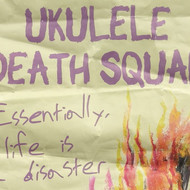 UKULELE
DEATH SQUAD
Essentially,
life is
a disaster